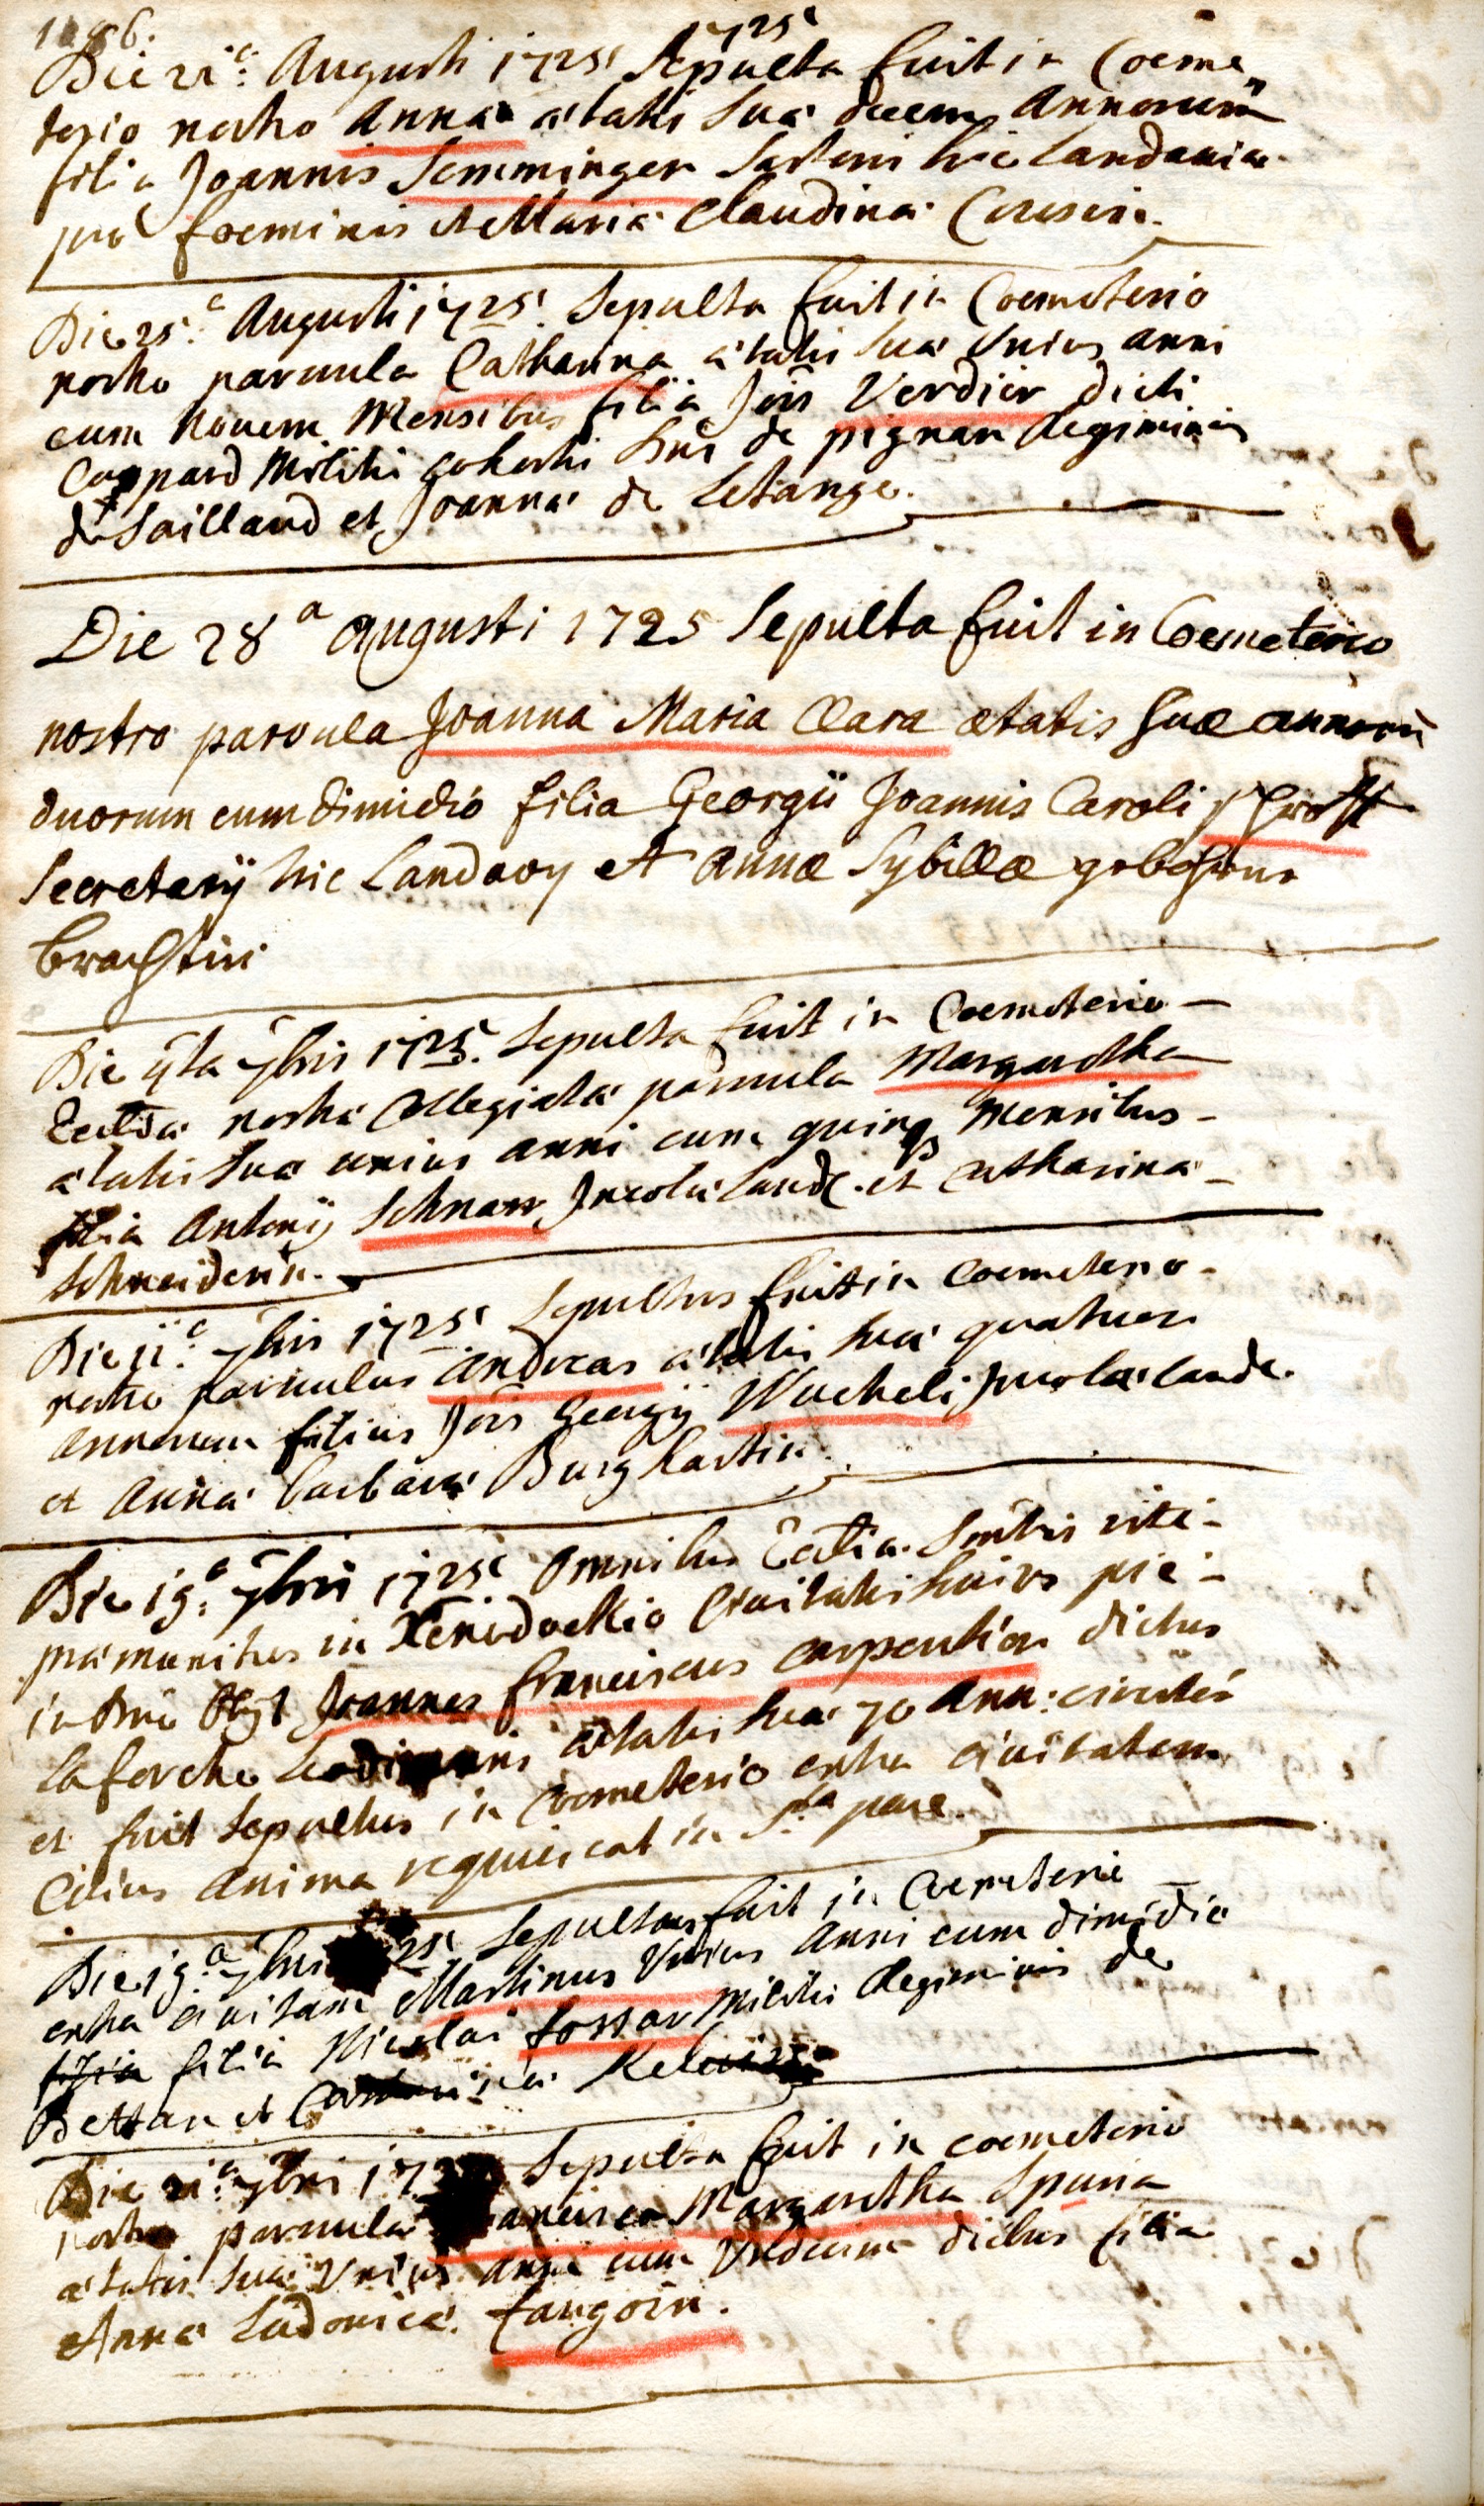 1725
Die 21ᵃ: Augusti 1725 Sepulta fuit in Coeme„
terio nostro Anna ætatis suæ decem Annorum
filia Joannis Semminger Sartoris hic Landaviæ
pro foeminis et Maria Claudina
Die 25.ᵃ Augusti 1725. Sepulta fuit in Coemeterio
nostro parvula Catharina ætatis suæ Unius anni
cum Novem Mensibus filia Jois Verdier dicti
Militis cohortis Dni de pignan Regiminis
de Sailland et Joanna de Letange.
Die 28ᵃ Augusti 1725 Sepulta fuit in Coemeterio
nostro parvula Joanna Maria Clara ætatis suæ annorū
duorum cum dimidio filia Georgii Joannis Caroli
Secretarij hic Landavy et Annæ Sybillæ gebohrne
brachtin
Die 4ta 7bris 1725. Sepulta fuit in Coemeterio –
Ecclæ nostræ Collegiatæ parvula Margaretha
ætatis suæ unius anni cum quinq Mensibus –
filia Antonij Schnarr Jncolæ Land. et Catharina –
Schneiderin.
Die 11.ᵃ 7bris 1725 Sepultus fuit in Coemeterio –
nostro parvulus Andreas ætatis suæ quatuor
annorum filius Jois Georgij Wucheli Jncolæ Land.
et Anna barbara Burghartin.
Die 19.ᵃ 7bris 1725 omnibus Ecclæ Sm̄tis rite –
præmunitus in Xenodochio Civitatis huius pie –
in Dno Obijt Joannes franciscus carpentier dictus
laforche ætatis suæ 70 Ann: circiter
et fuit Sepultus in Coemeterio extra civitatem
Cuius Anima requiescat in S.ta pace.
Die 19.ᵃ 7bris 25 Sepultus fuit in Coemeterio –
extra civitatem Martinus Unius Anni cum dimidio
filia Nicolai fossar Militis Regiminis de
Bettan et
Die 21.ᵃ 7bris 17 Sepulta fuit in coemeterio
nostro parvula ancisca Margaretha Spuria
ætatis suæ Unius Anni cum Undecim diebus filia
Anna Ludovica Tangoin.